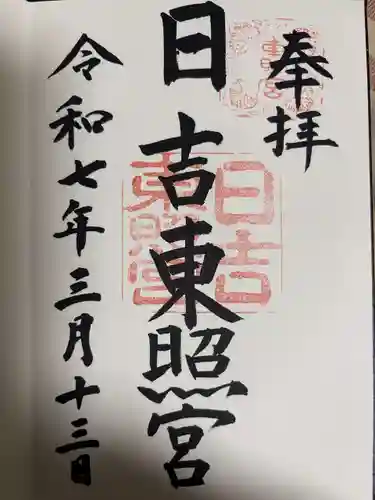 奉拝
日吉東照宮
令和七年三月十三日
日吉
東照宮